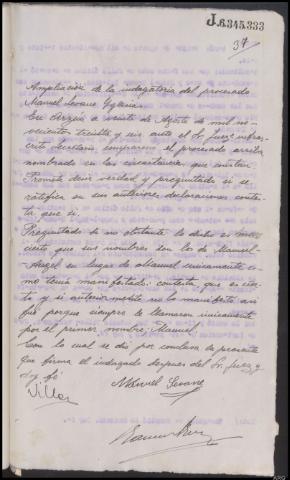 J.6345.333
37
Ampliación de la indagatoria del procesado
Manuel Seoane Yglesia
En Vergín a veinte de Agosto de mil no-
vecientos treinta y seis ante el Sr. Juez infras-
crito Secretario comparece el procesado arriba
nombrado en las circunstancias que constan
Promete decir verdad y preguntado si se
ratifica en sus anteriores declaraciones contes-
ta que si.
Preguntado no obstante lo dicho es más
cierto que sus nombres son los de Manuel-
-Angel en lugar de Manuel unicamente co-
mo tenia manifestado: contesta que es cier-
to y si anteriormente no lo manifestó así
fué porque siempre le llamaron unicamente
por el primer nombre, Manuel.
Con lo cual se dió por conclusa la presente
que firma el indagado despues del Sr. Juez y
doy fé
Manuel Seoane